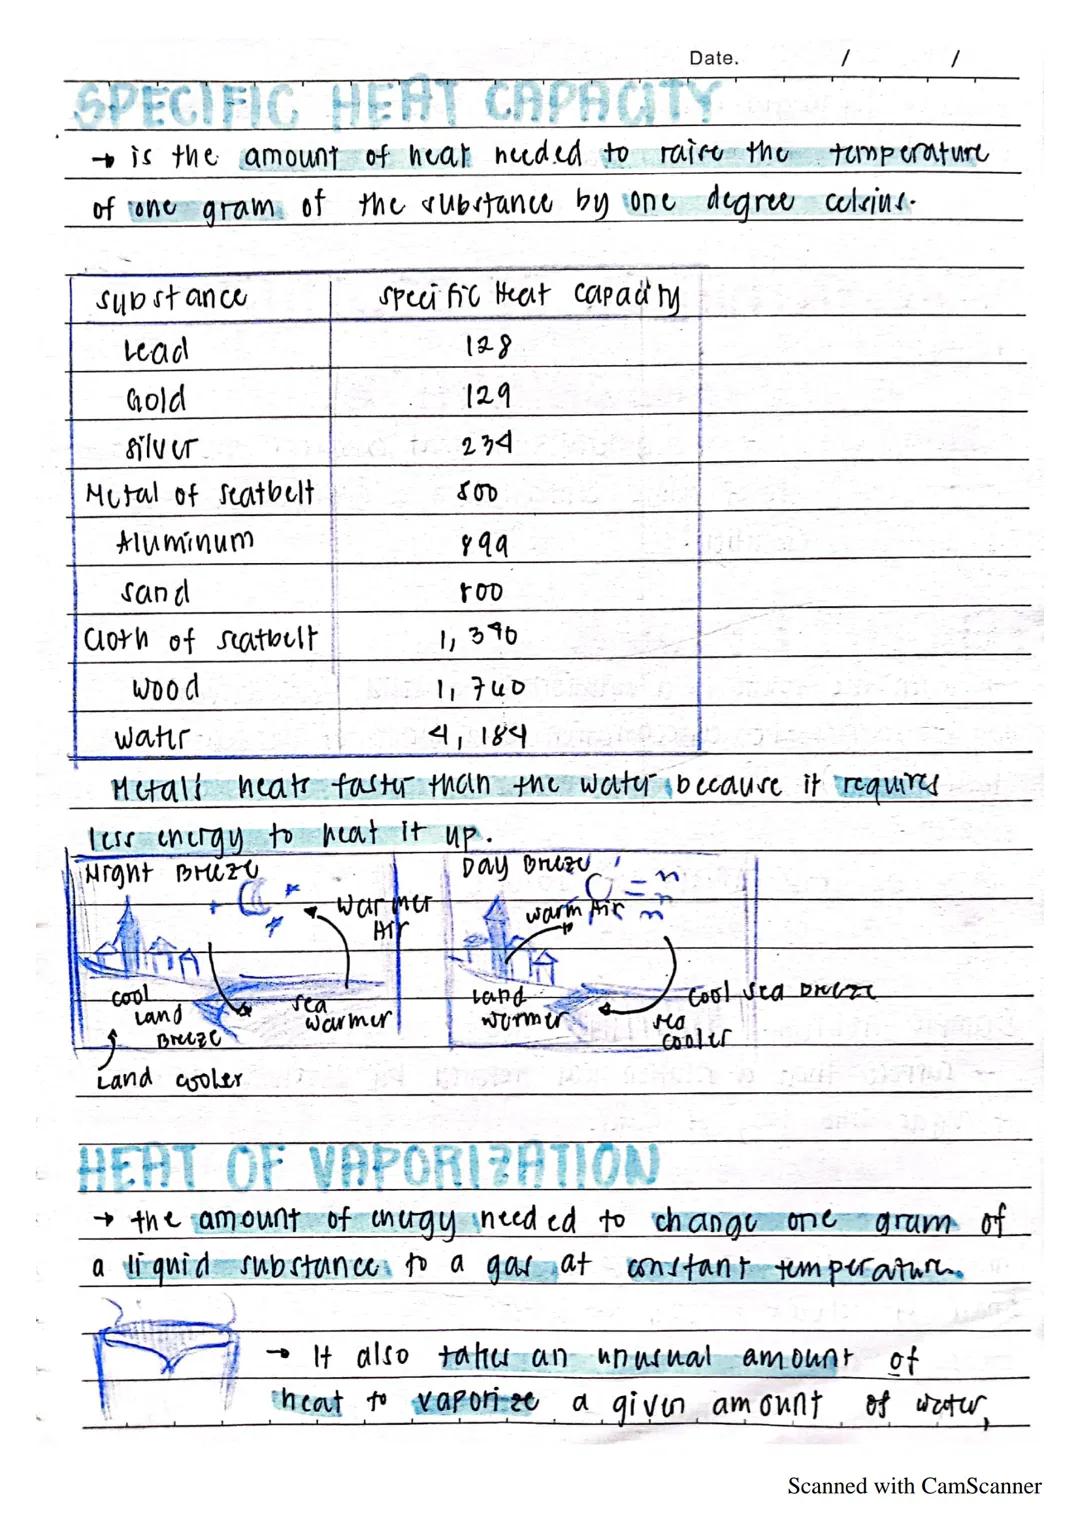 Date. / /
SPECIFIC HEAT CAPACITY
→ is the amount of heat needed to raise the temperature
of one gram of the substance by one degree celsius.
substance specific Heat capacity
Lead 128
Gold 129
silver 234
Metal of seatbelt 500
Aluminum 899
sand 800
Cloth of seatbelt 1,390
wood 1,760
water 4,184
Metals heats faster than the water because it requires
less energy to heat it up.
Night Breeze
warmer
Air
cool
Land
Breeze
sea
warmer
Land cooler
Day Breeze
warm Air
Land
warmer
cool sea Breeze
sea
cooler
HEAT OF VAPORIZATION
→ the amount of energy needed to change one gram of
a liquid substance to a gas at constant temperature.
→ It also takes an unusual amount of
heat to vaporize a given amount of water,
Scanned with CamScanner